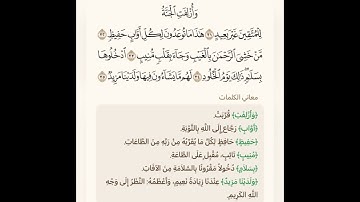 وَأُزْلِفَتِ الْجَنَّةُ
لِلْمُتَّقِينَ غَيْرَ بَعِيدٍ ﴿٣١﴾ هَٰذَا مَا تُوعَدُونَ لِكُلِّ أَوَّابٍ حَفِيظٍ ﴿٣٢﴾
مَّنْ خَشِيَ الرَّحْمَٰنَ بِالْغَيْبِ وَجَاءَ بِقَلْبٍ مُّنِيبٍ ﴿٣٣﴾ ادْخُلُوهَا
بِسَلَامٍ ذَٰلِكَ يَوْمُ الْخُلُودِ ﴿٣٤﴾ لَهُم مَّا يَشَاءُونَ فِيهَا وَلَدَيْنَا مَزِيدٌ ﴿٣٥﴾
معاني الكلمات
﴿وَأُزْلِفَتِ﴾ قُرِّبَتْ.
﴿أَوَّابٍ﴾ رَجَّاعٍ إِلَى اللَّهِ بِالتَّوْبَةِ.
﴿حَفِيظٍ﴾ حَافِظٍ لِكُلِّ مَا يُقَرِّبُهُ إِلَى رَبِّهِ مِنَ الطَّاعَاتِ.
﴿مُّنِيبٍ﴾ تَائِبٍ، مُقْبِلٍ عَلَى الطَّاعَةِ.
﴿بِسَلَامٍ﴾ دُخُولًا مَقْرُونًا بِالسَّلَامَةِ مِنَ الْآفَاتِ.
﴿وَلَدَيْنَا مَزِيدٌ﴾ عِنْدَنَا زِيَادَةُ نَعِيمٍ، وَأَعْظَمُهُ: النَّظَرُ إِلَى وَجْهِ
اللَّهِ الْكَرِيمِ.